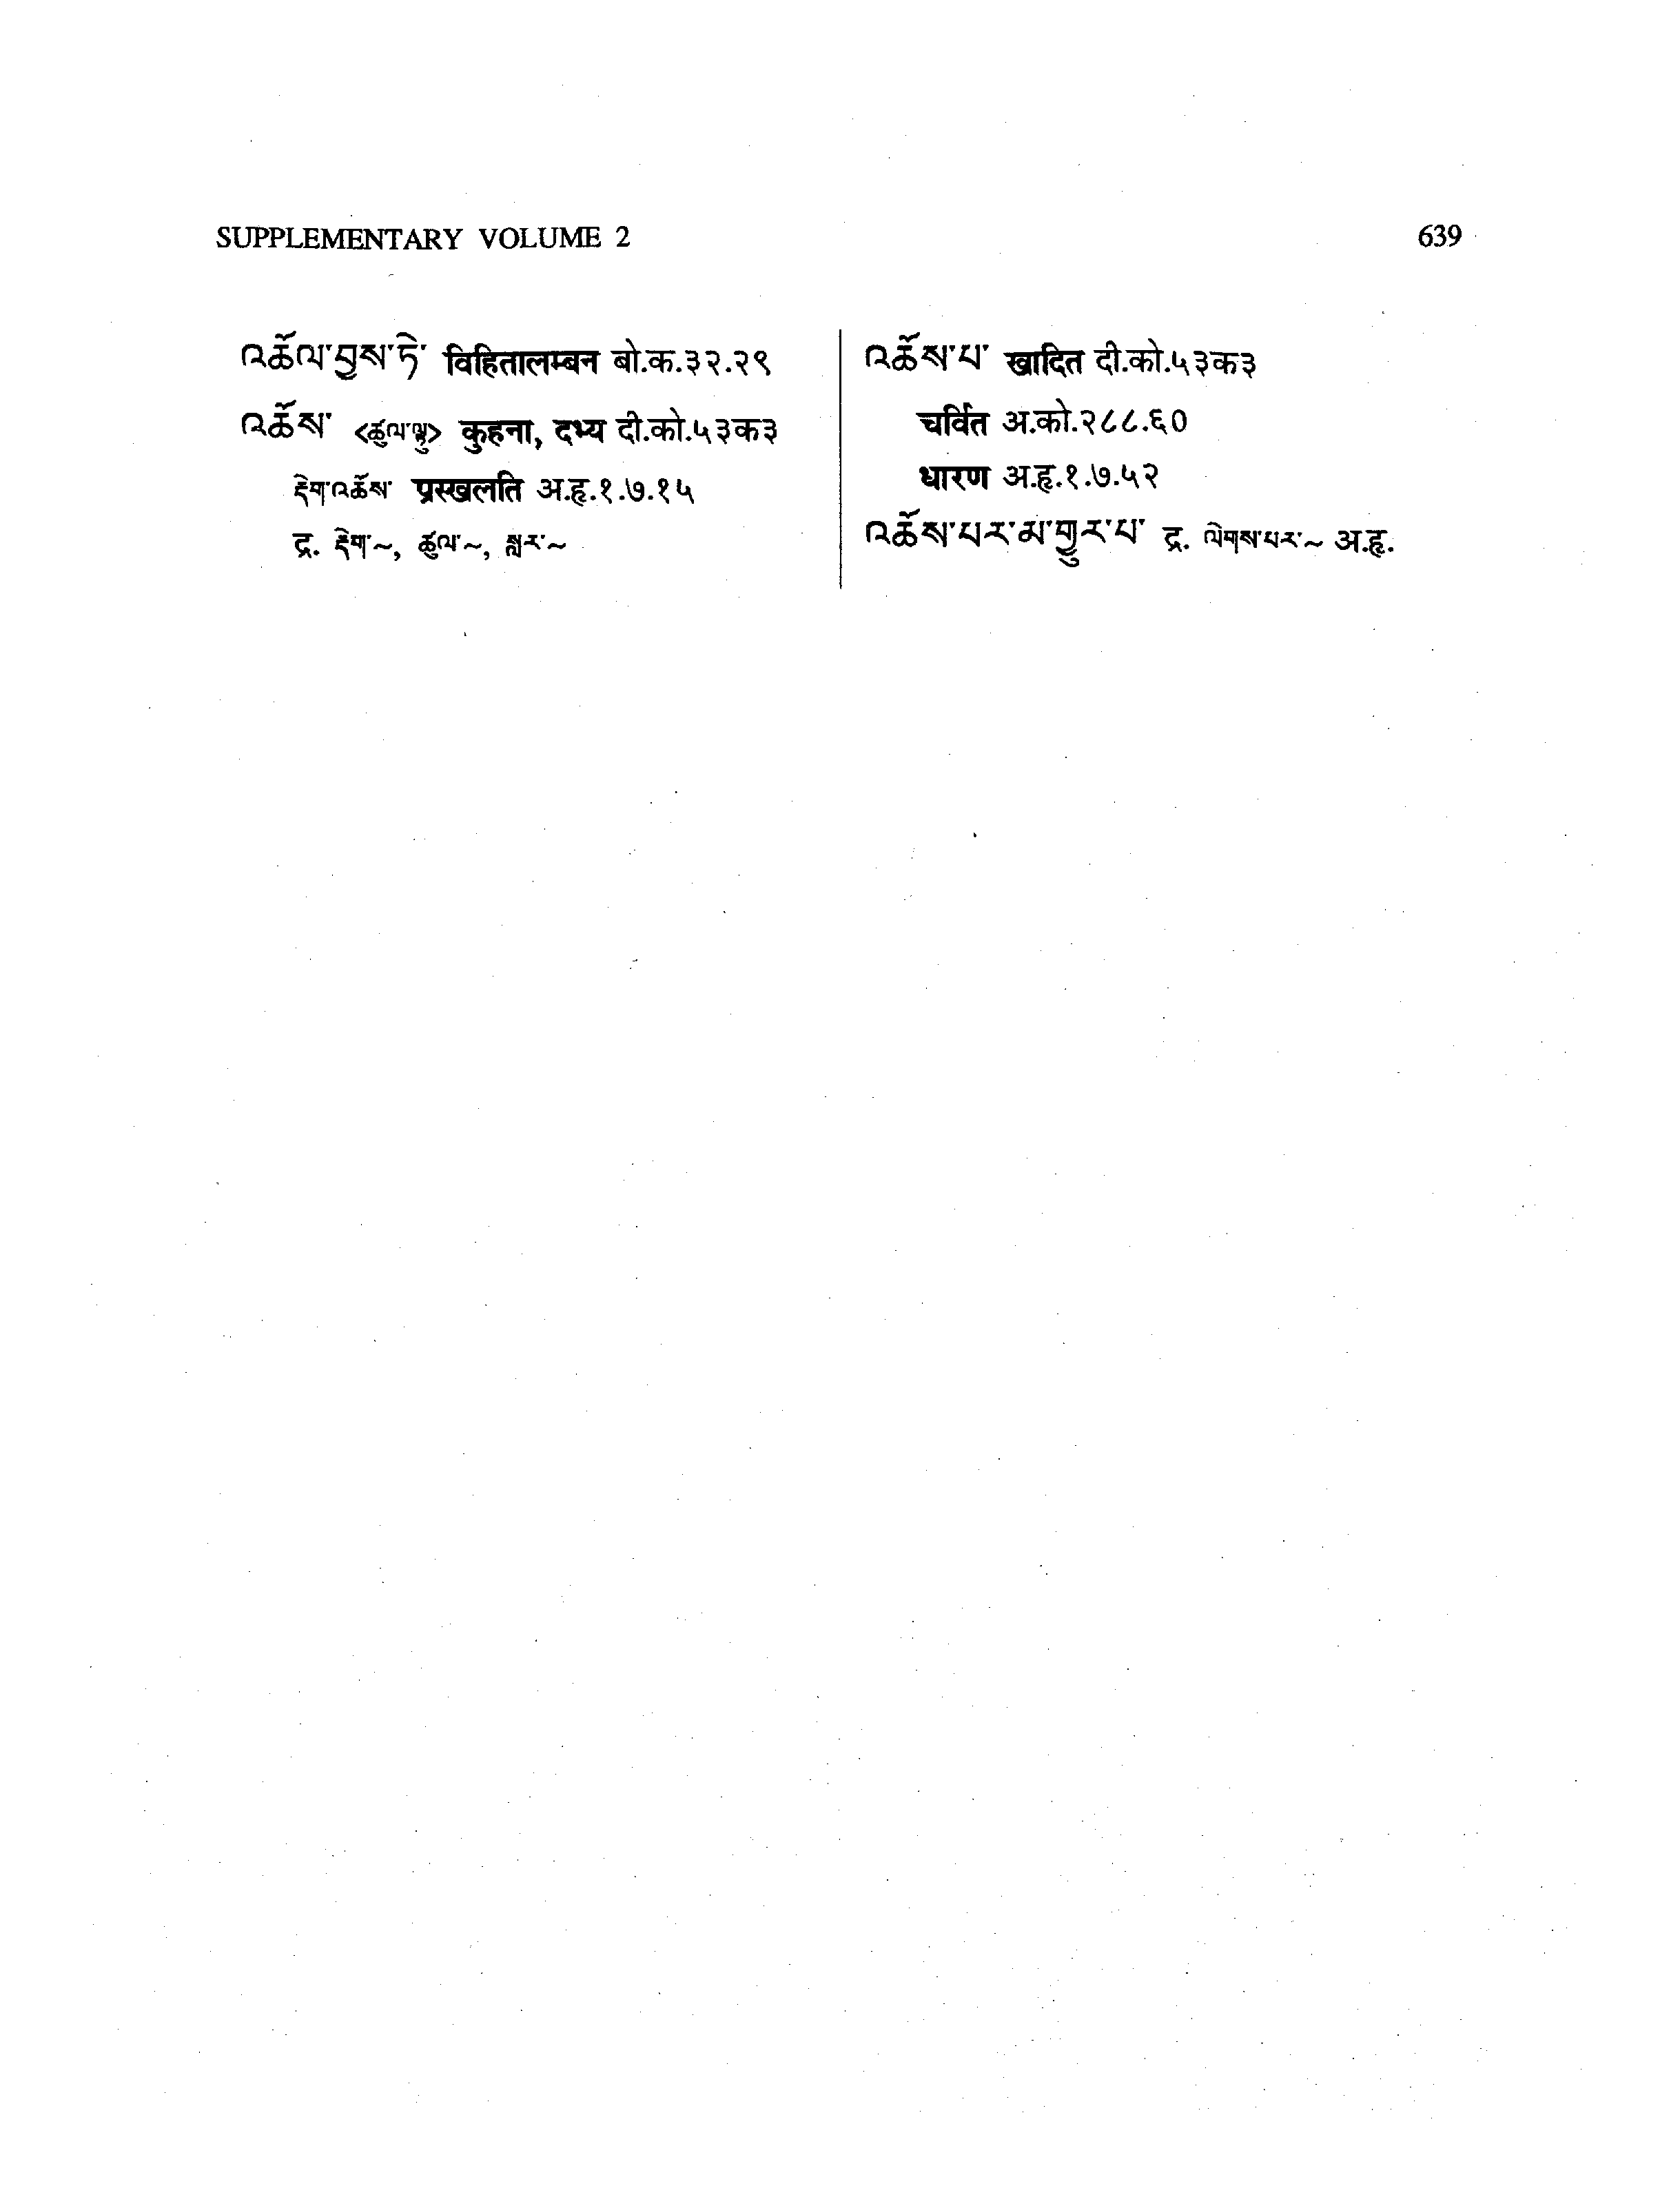 SUPPLEMENTARY VOLUME 2 639
འཆོལ་བྱས་ཏེ་ विहितालम्बन बो.क.३२.२९
འཆོས་ <ཚུལ་ལྟ> कुहना, दभ्य दी.को.५३क३
རྡེག་འཆོས་ प्रस्खलति अ.हृ.१.७.१५
द्र. རྡེག་~, ཚུལ་~, སླར་~
འཆོས་པ་ खादित दी.को.५३क३
चर्वित अ.को.२८८.६०
धारण अ.हृ.१.७.५२
འཆོས་པར་མ་གྱུར་པ་ द्र. ལེགས་པར་~ अ.हृ.